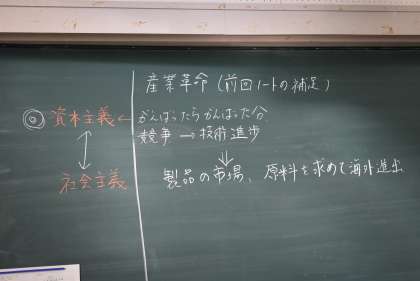 産業革命(前回ノートの補足)
◎資本主義←がんばったらがんばった分
競争→技術進歩
↕
↓
社会主義
製品の市場、原料を求めて海外進出